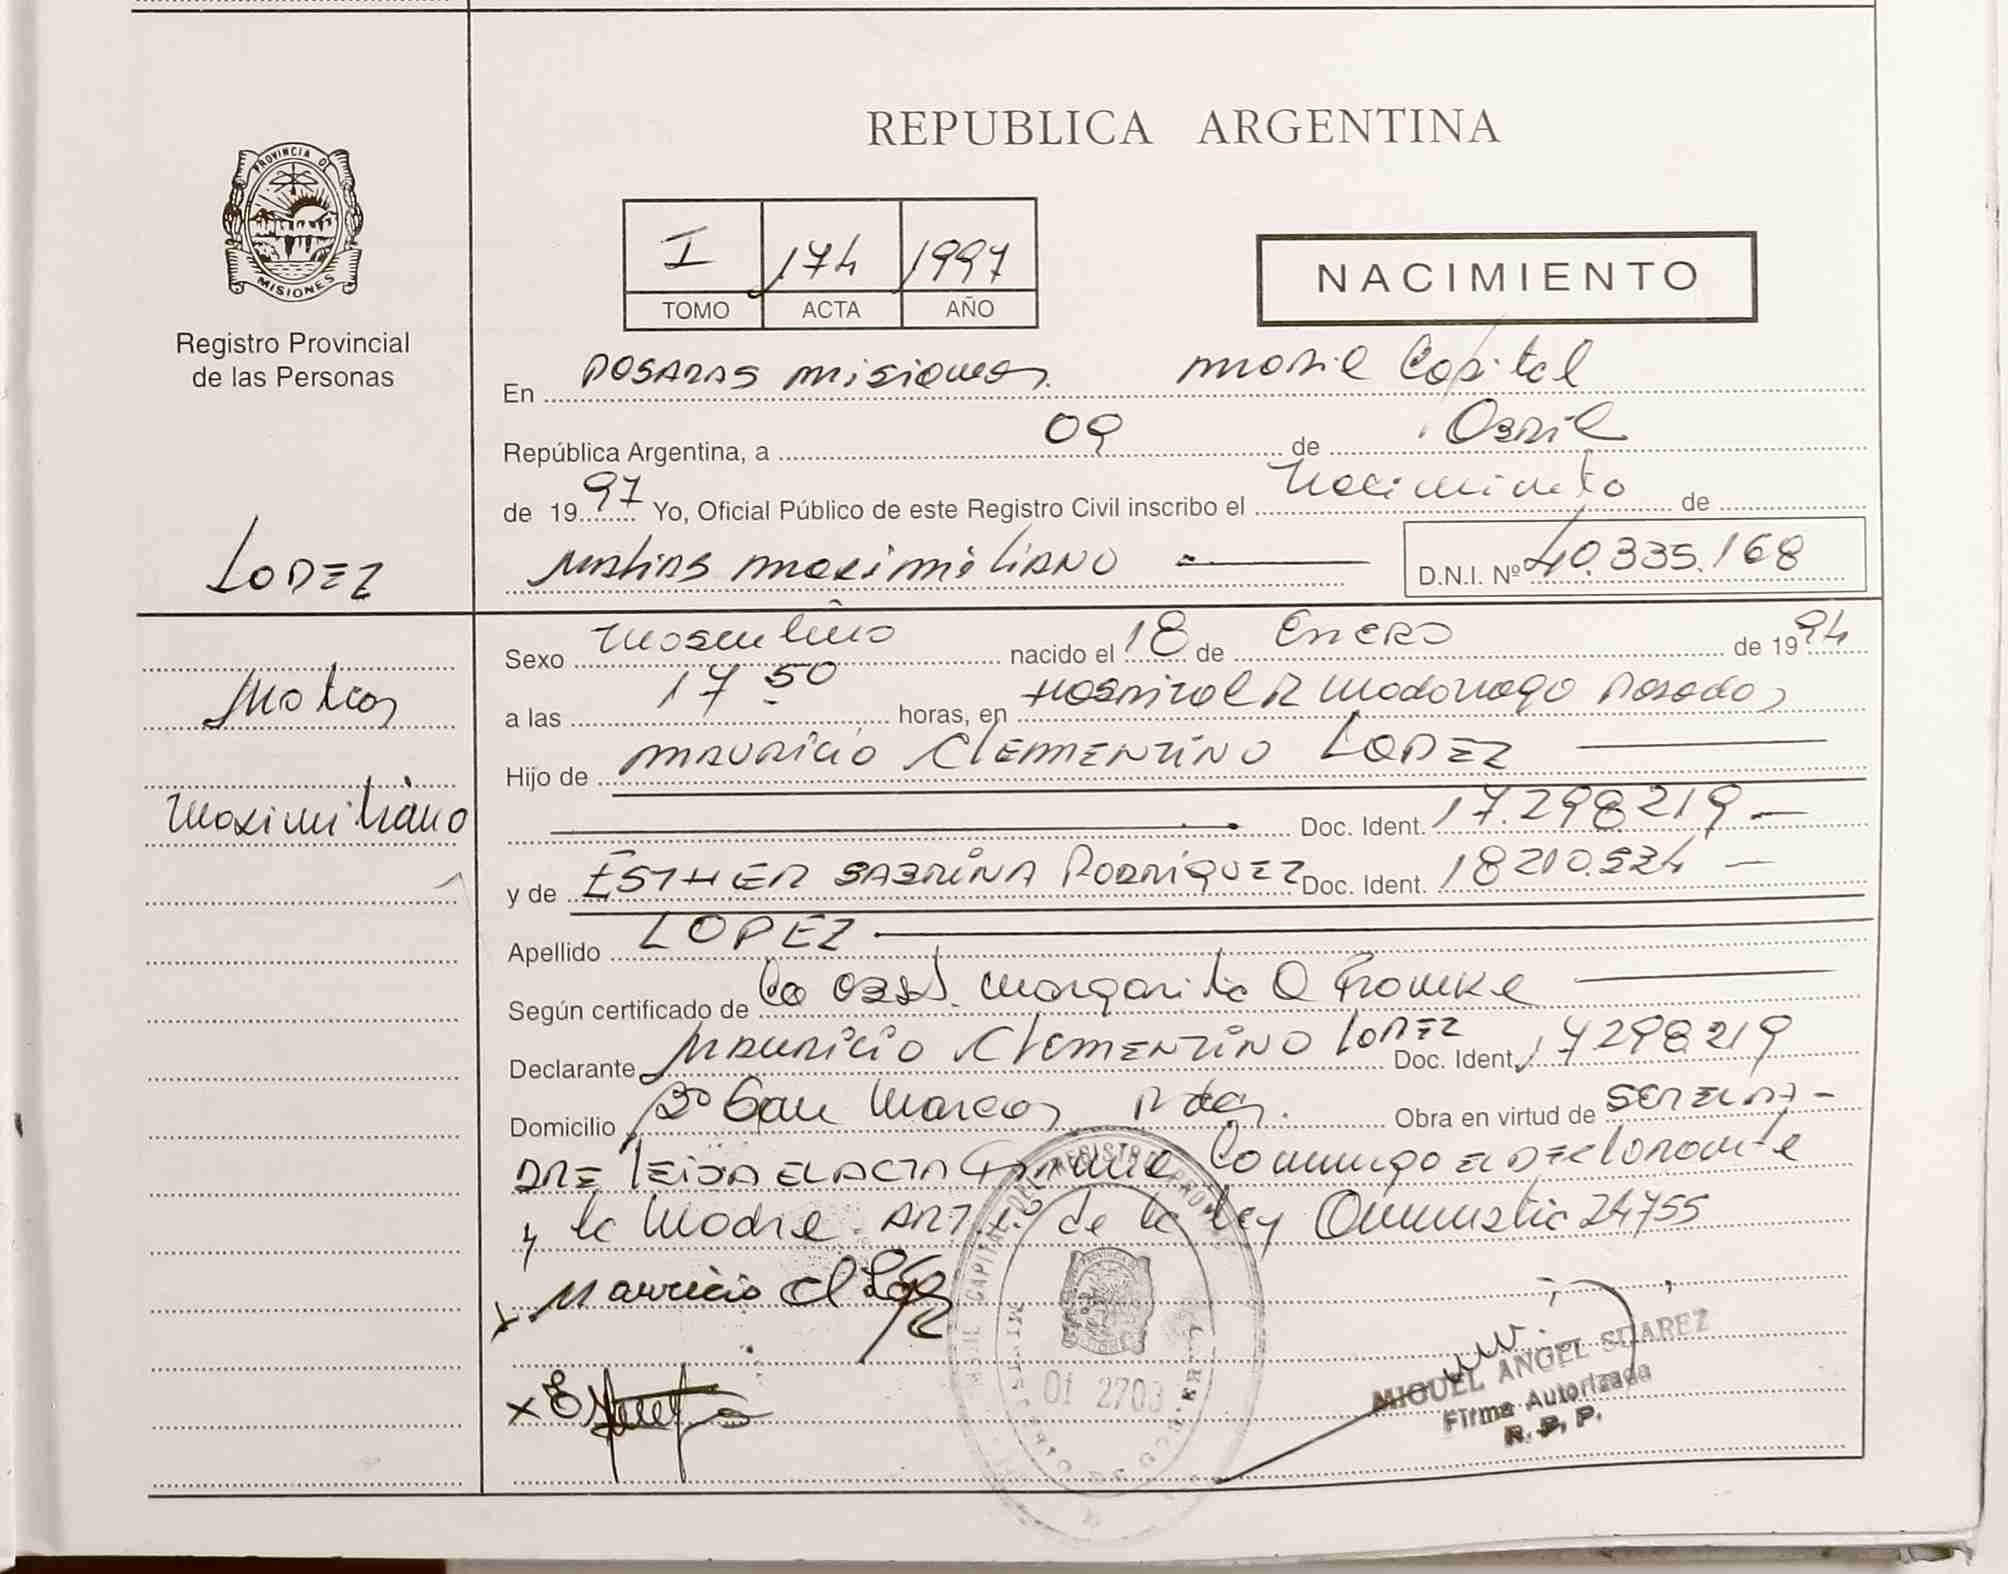 REPUBLICA ARGENTINA
PROVINCIA DE
MISIONES
Registro Provincial
de las Personas
I 174 1997
TOMO ACTA AÑO
NACIMIENTO
En POSADAS MISIONES. Móvil Capital
República Argentina, a 09 de Abril
de 1997 Yo, Oficial Público de este Registro Civil inscribo el Nacimineto de
LOPEZ
Matias Maximiliano
D.N.I. Nº 40.335.168
Sexo Masculino nacido el 18 de Enero de 1994
Matias
a las 17 50 horas, en Hospital R Madariaga Posadas
Hijo de MAURICIO CLEMENTINO LOPEZ
Maximiliano
Doc. Ident. 17.298219
y de ESTHER SABRINA RODRIGUEZ Doc. Ident. 18210.534
Apellido LOPEZ
Según certificado de La Obst. Margarita Q Fromke
Declarante MAURICIO CLEMENTINO LOPEZ Doc. Ident. 17298219
Domicilio Bº San Marcos Pdas. Obra en virtud de
LEIDA EL ACTA Firma Conmigo EL DECLARANTE
y la Madre. ART 1º de la Ley Omnustia 24755
Mauricio Cl
01 2703
MIGUEL ANGEL SUAREZ
Firma Autorizada
R. P. P.